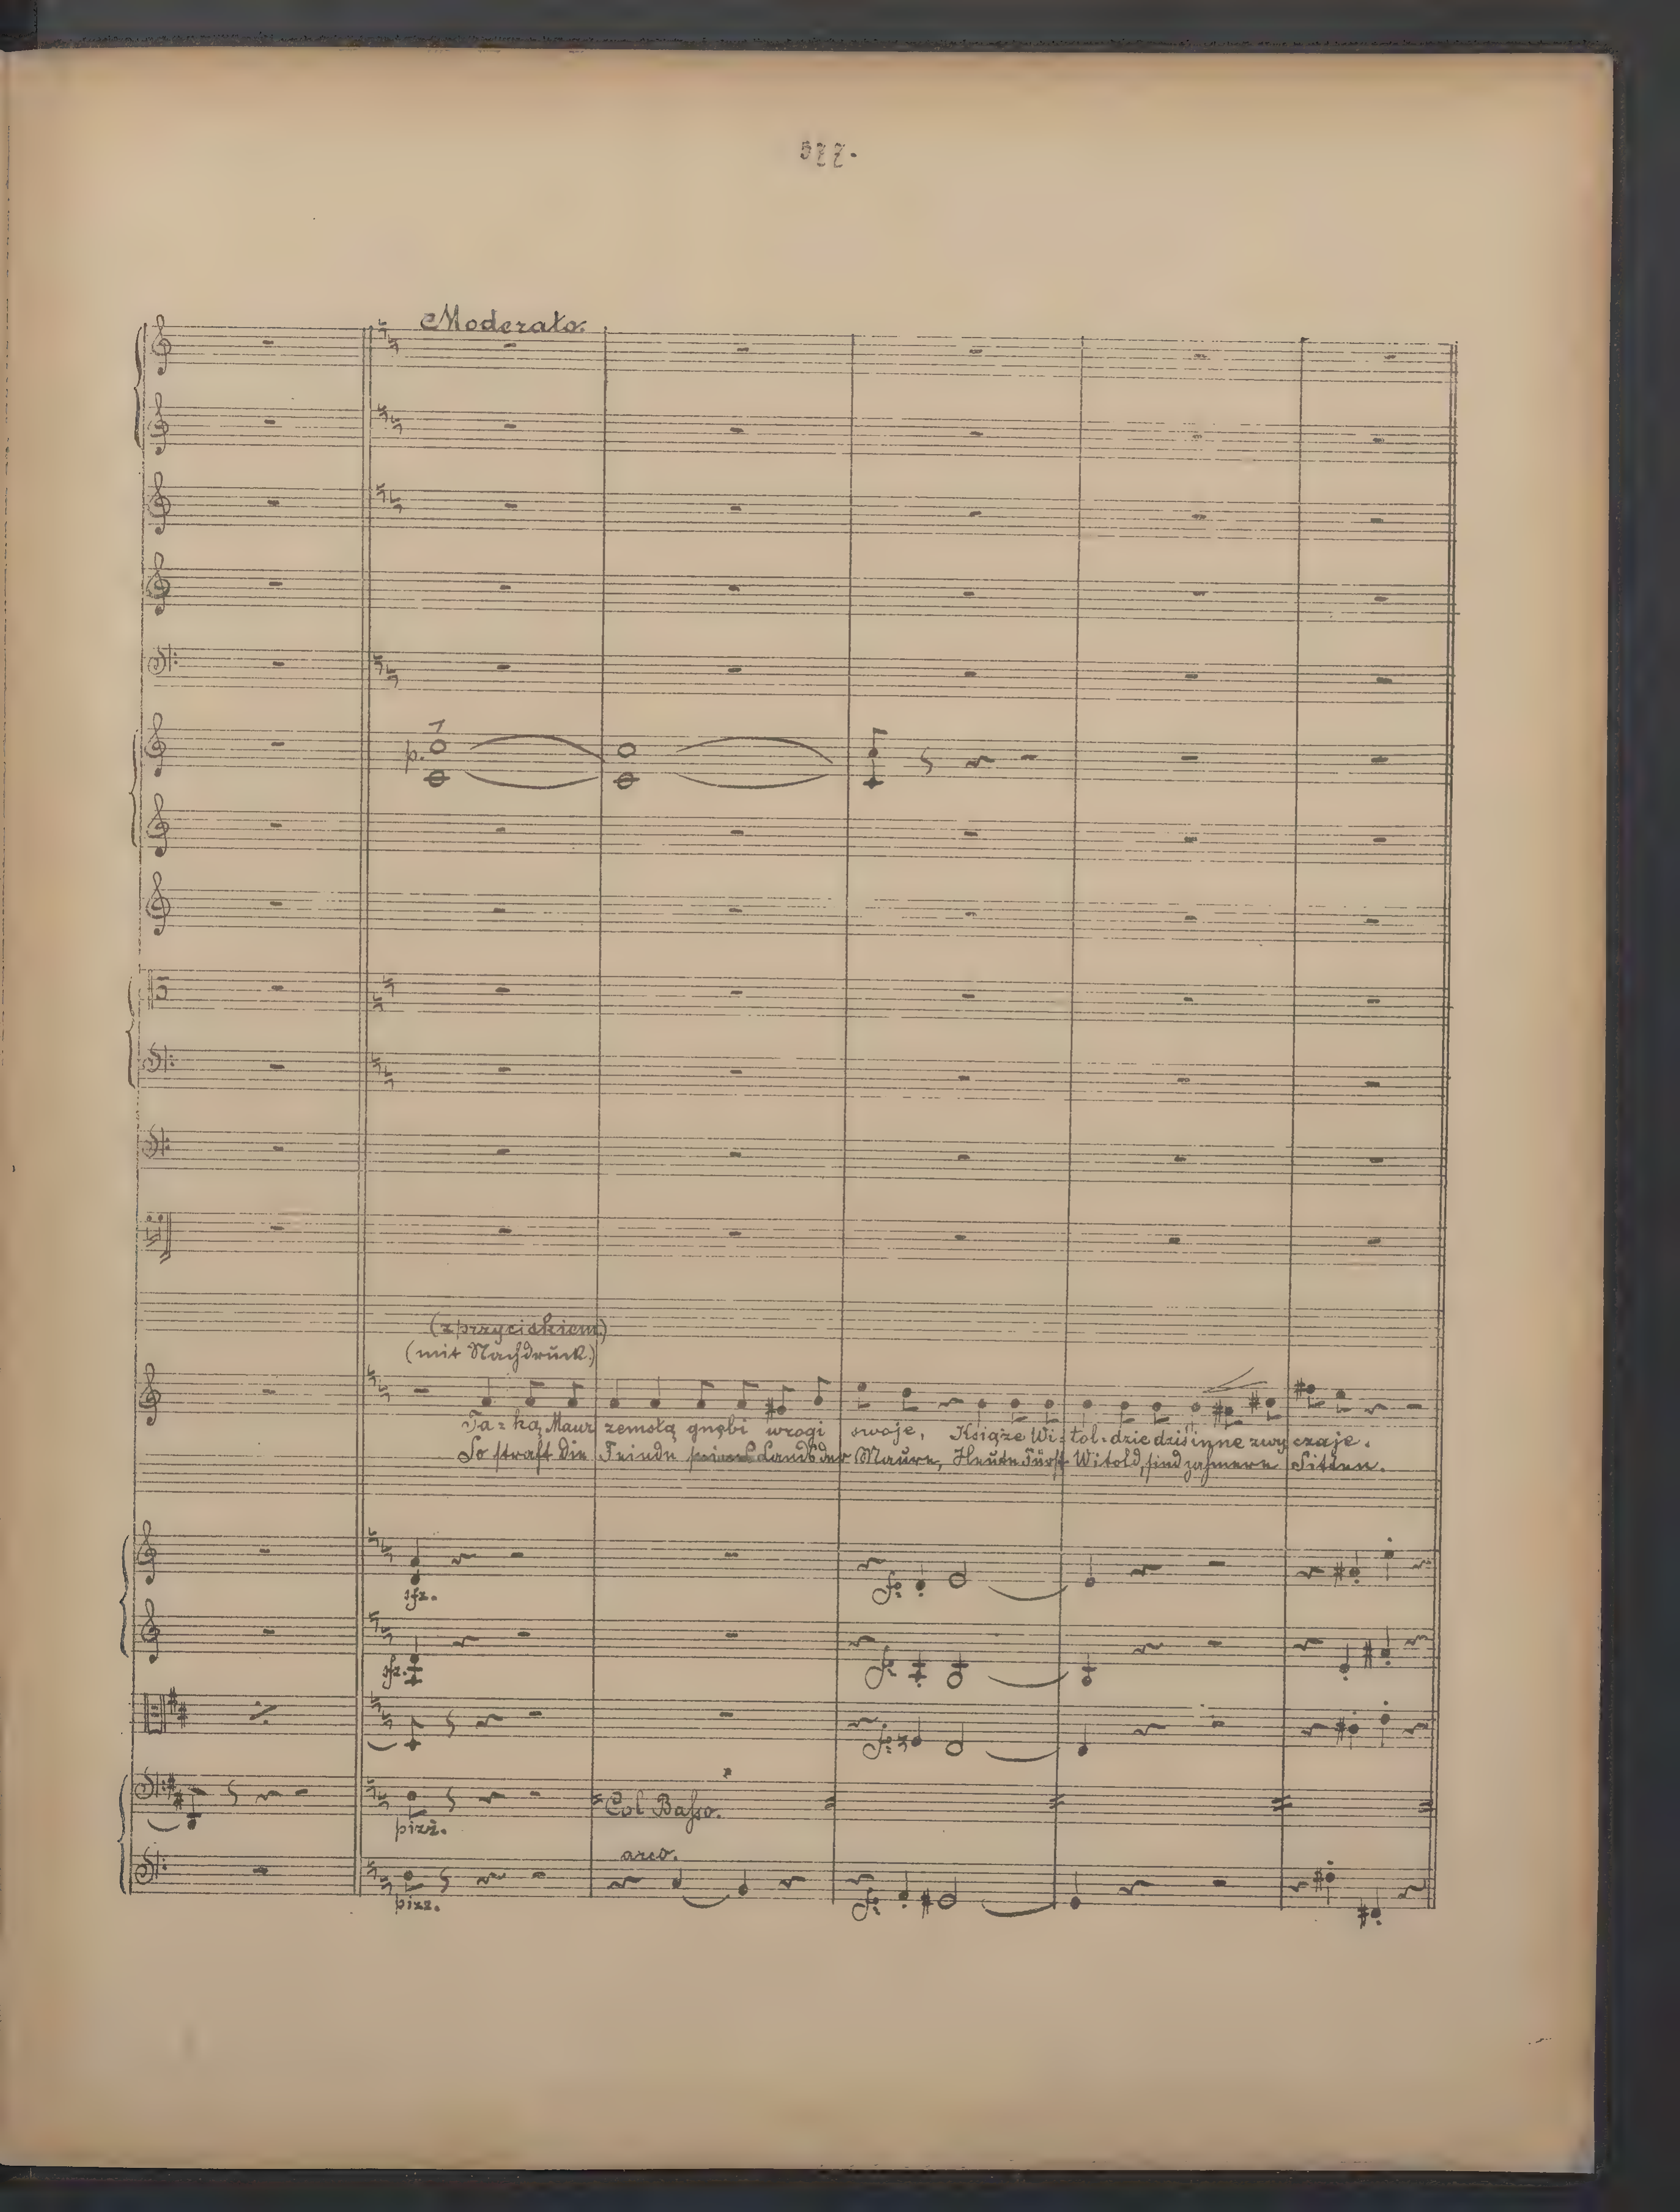 577.
Moderato.
p.
(z przyciskiem)
(mit Nachdruck.)
Ta-ką Maur zemstą gnębi wrogi swoje, Książe Wi-tol-dzie dziś inne zwyczaje.
So straft die Feinde Lands der Maure, Heute Fürst Witold, sind zahmere Sitten.
sfz. f.
sfz. f.
f.
pizz. Col Basso.
arco.
pizz. f.